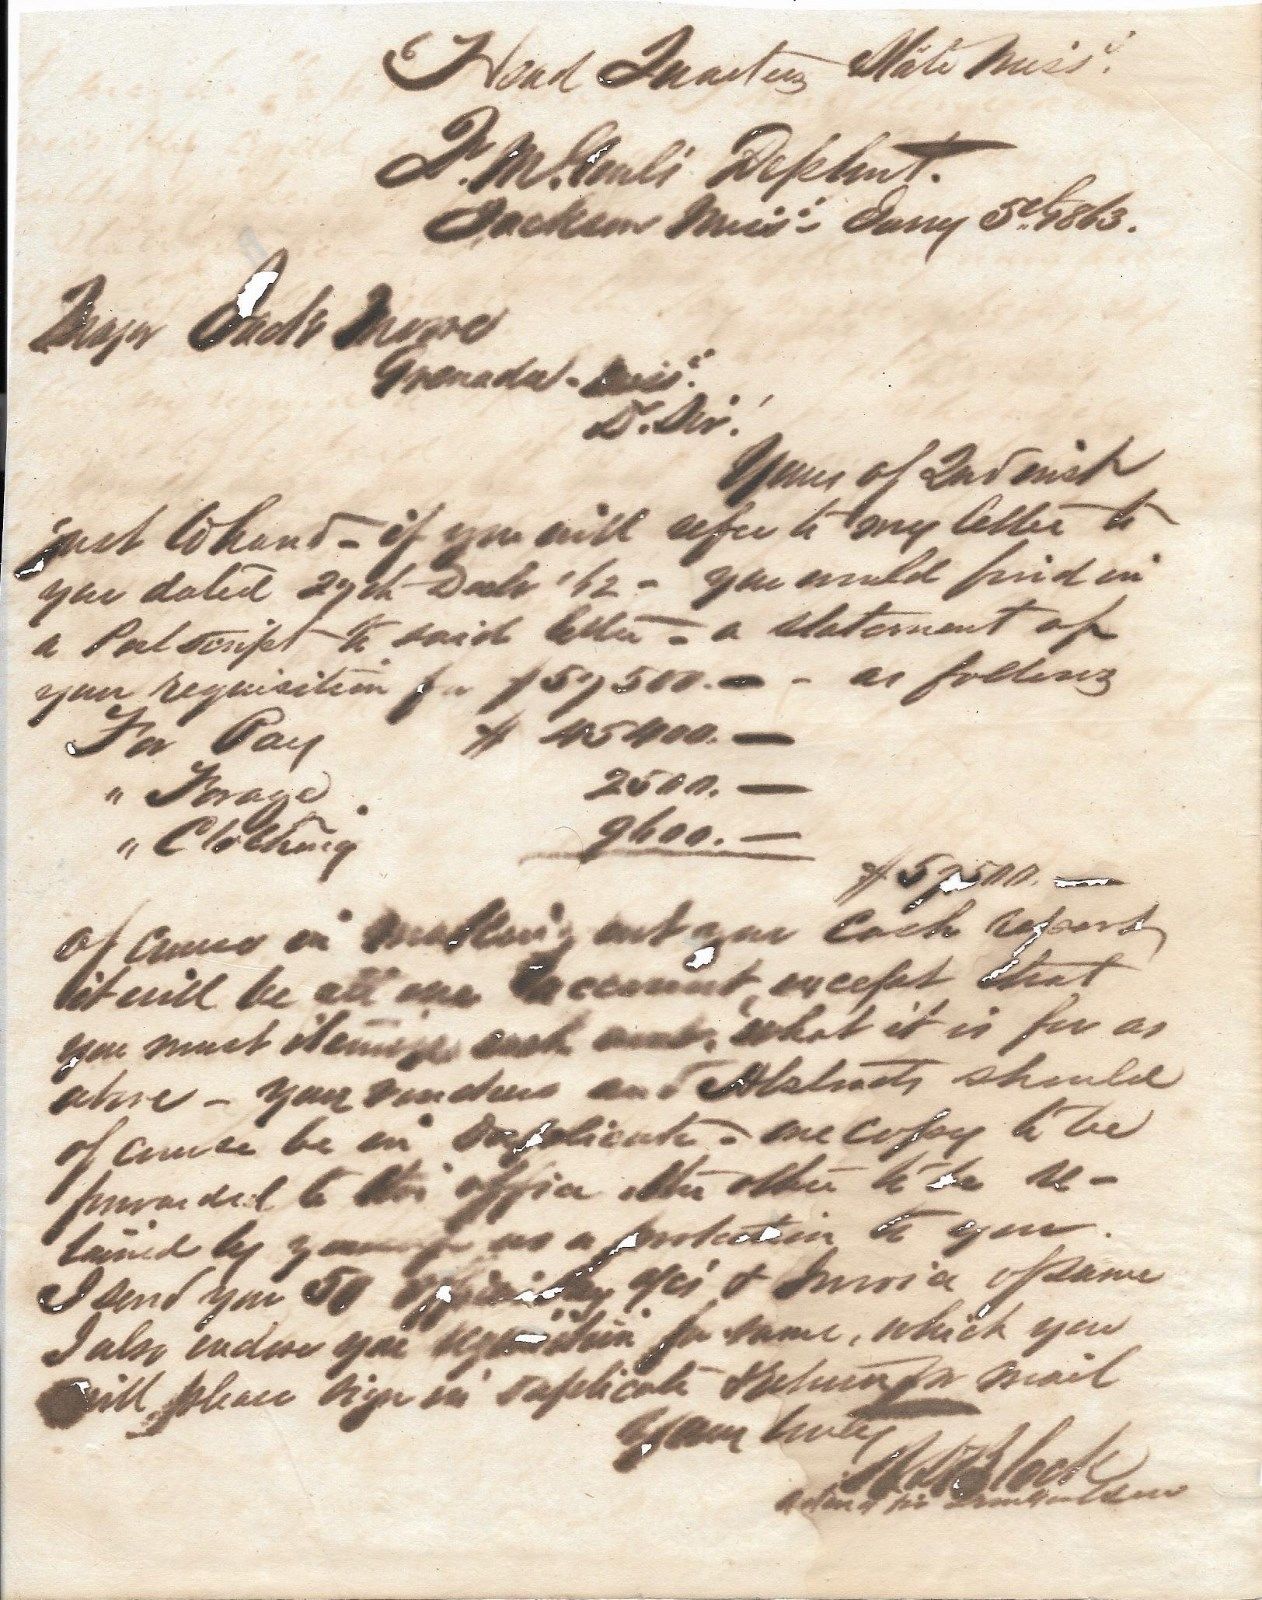 Head Quarters State Miss.
Q. M. Genl's Depmt.
Jackson Miss. Jany 5th 1863.
Major
Grenada - Miss.
D. Sir!
Yours of 2nd inst
just to hand - if you will refer to my letter to
you dated 29th Decbr '62 - you would find in
a Postscript to said letter - a statement of
your requisition for $57,500. — - as follows
For Pay $ 45400. —
" Forage 2500. —
" Clothing 9600. —
$57500. —
of course in making out your Cash report
it will be all one account, except that
you must itemize each amt. what it is for as
above - your vouchers and Abstracts should
of course be in duplicate - one copy to be
forwarded to this office the other to be re-
tained by yourself as a protection to you.
I send you 50 & Invoice of same
I also endose your requisition for same, which you
will please sign in duplicate & return pr mail
Yours truly